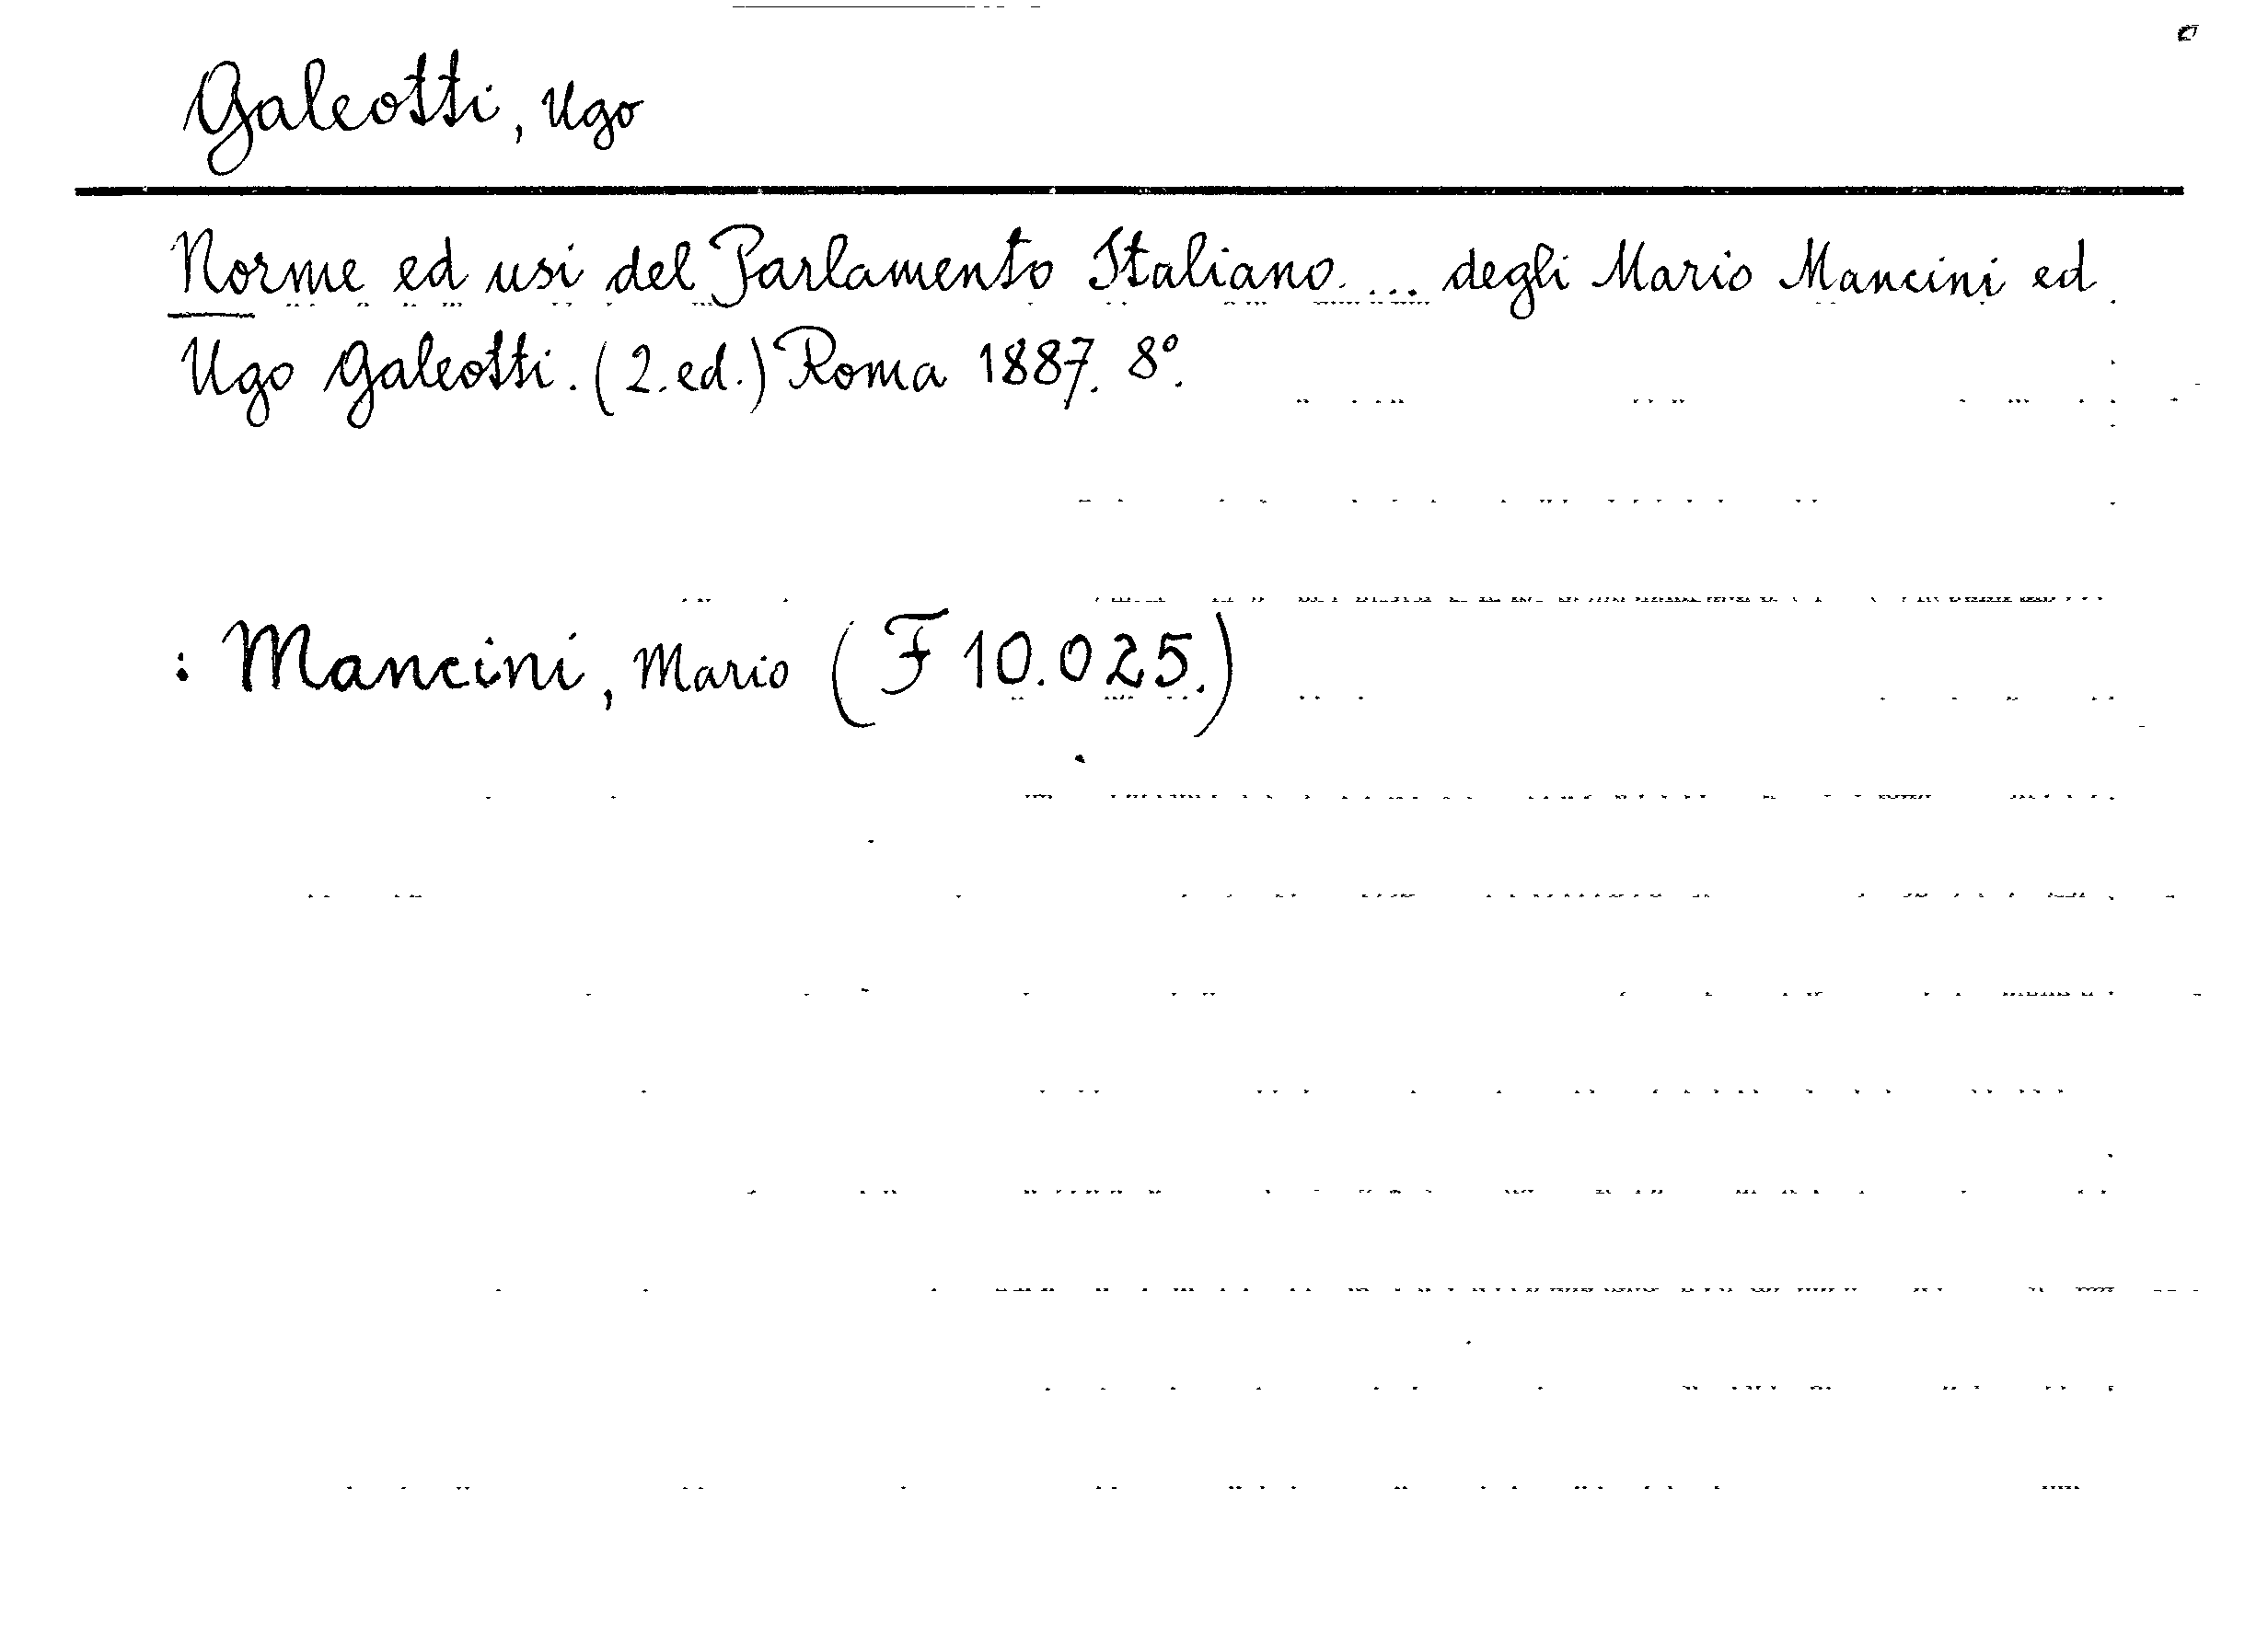 Galeotti, Ugo
Norme ed usi del Parlamento Italiano. ... degli Mario Mancini ed
Ugo Galeotti. (2. ed.) Roma 1887. 8º.
: Mancini, Mario (F 10.025.)